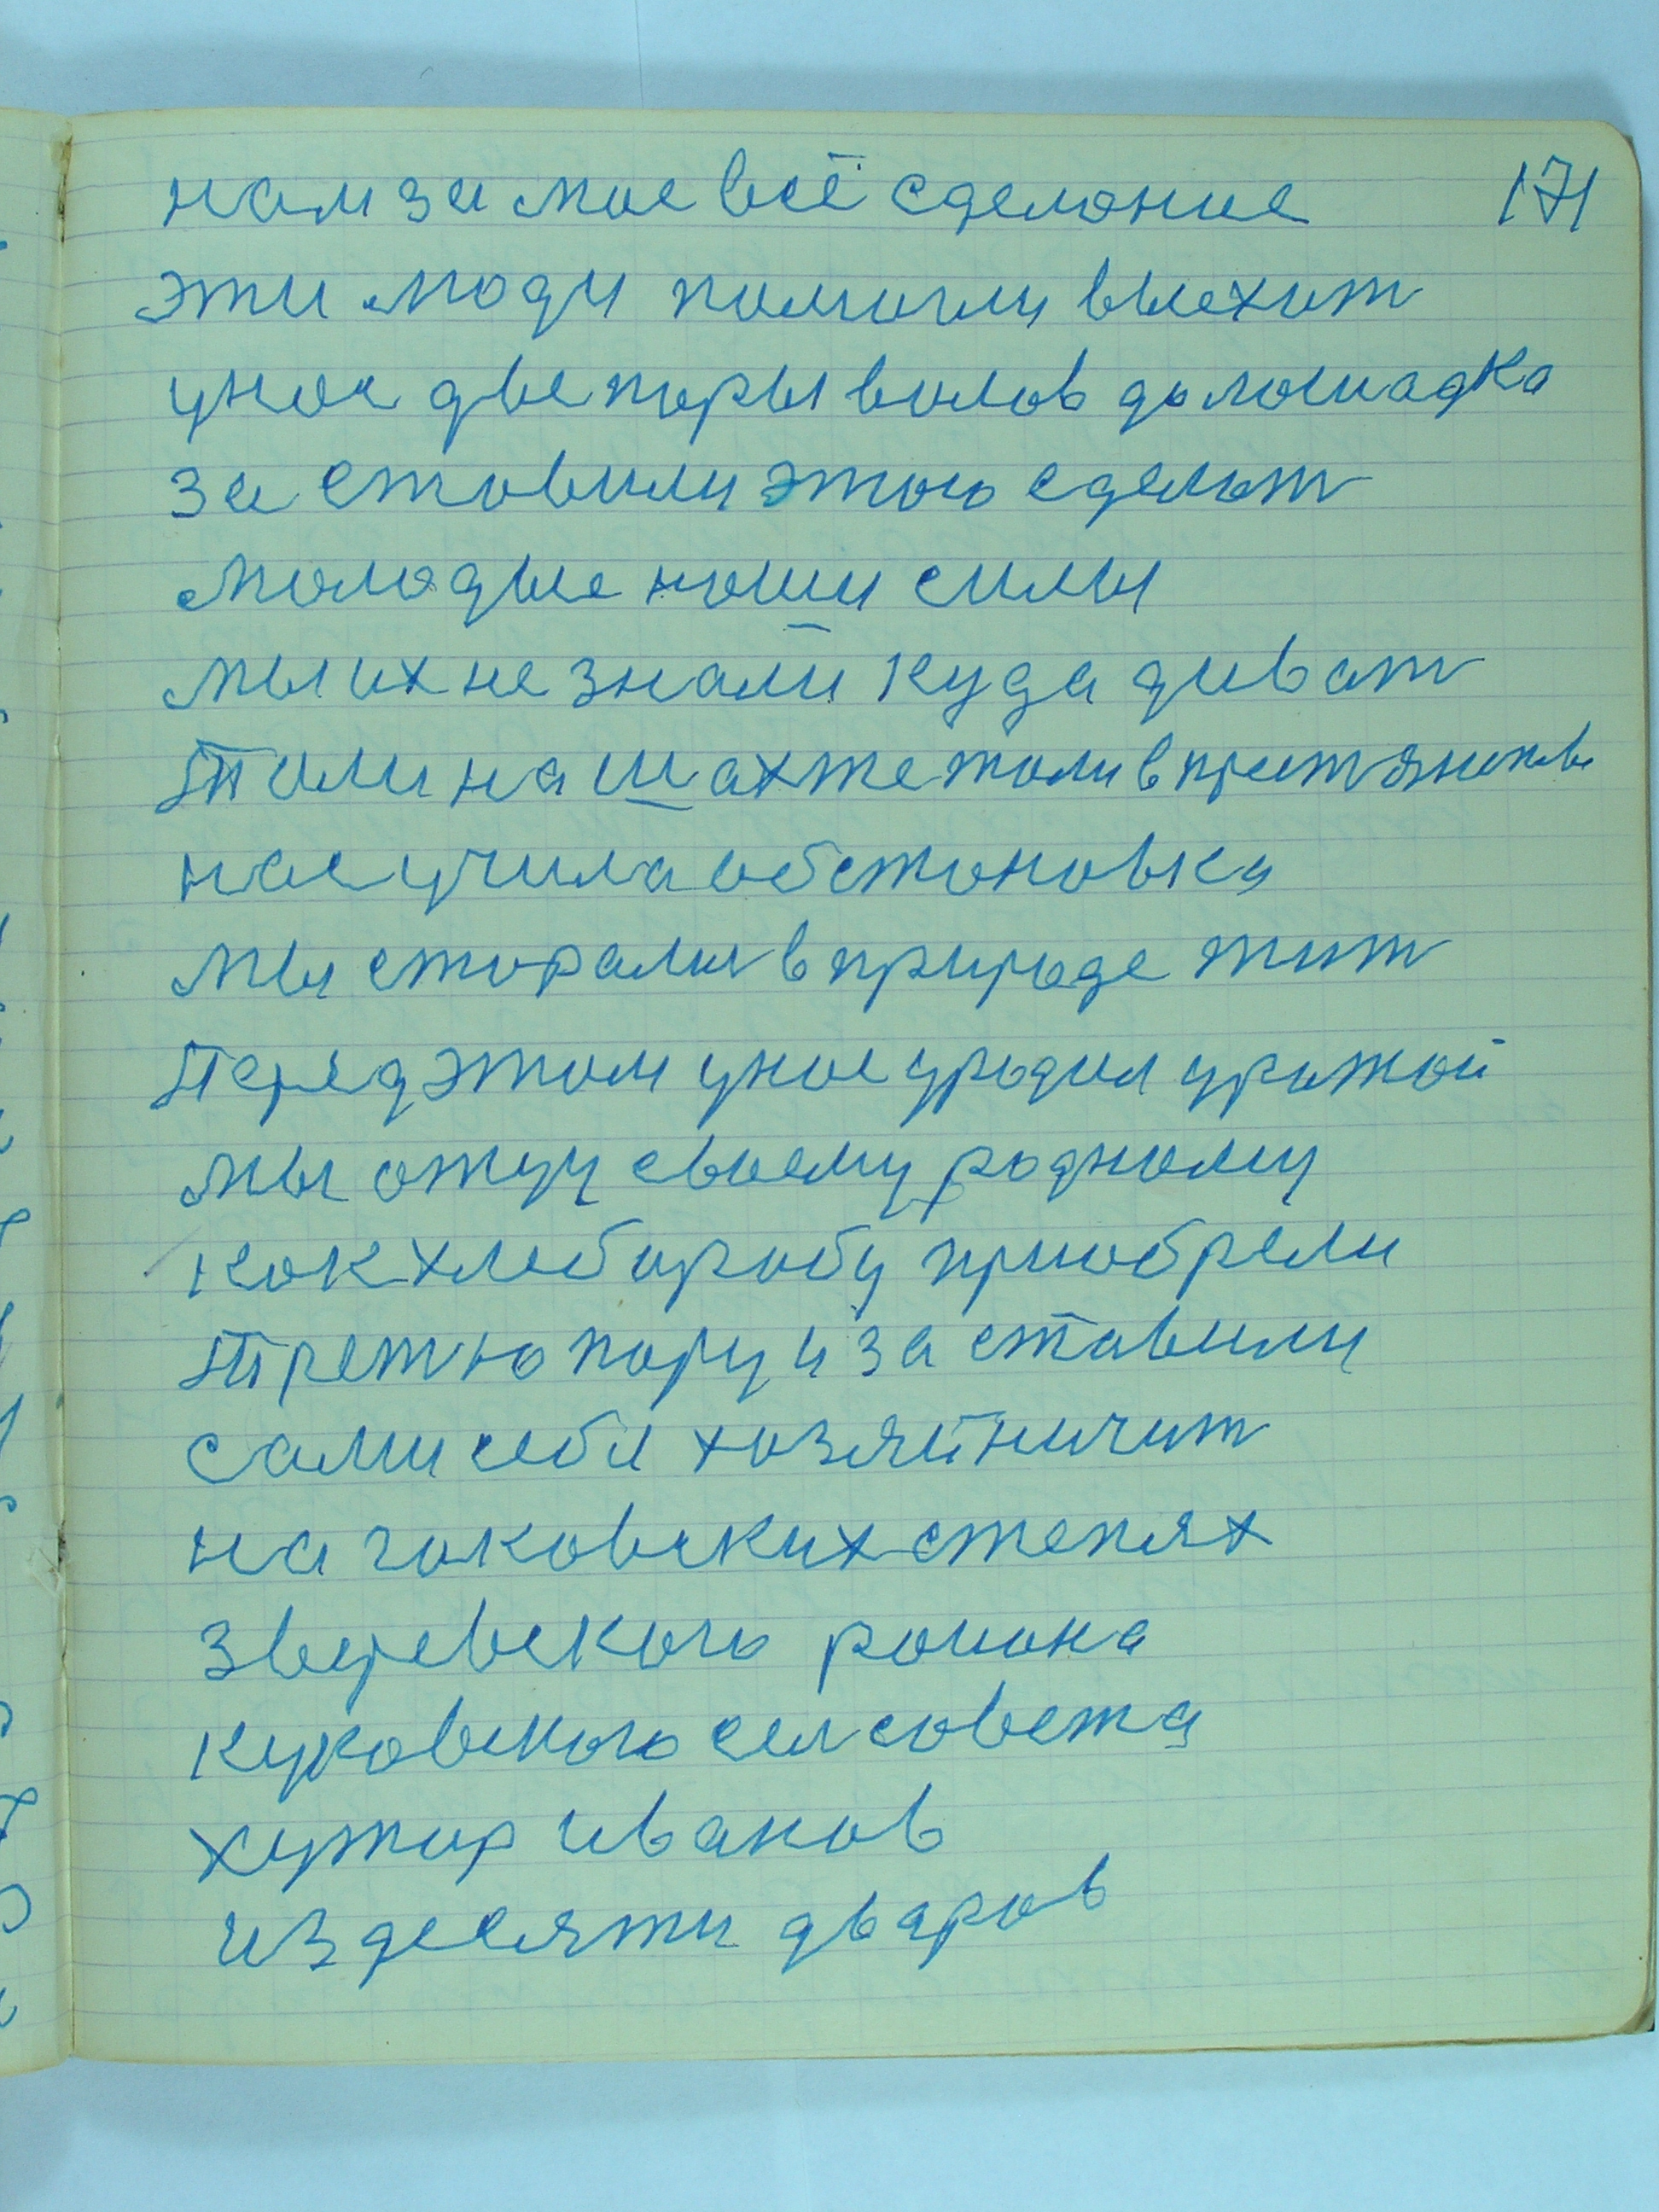 нам за мое всё сделоние 171
эти люди помогли выехат
унас две пары волов да лошадка
за ставили этого сделат
молодые наши силы
мы их не знали куда дават
Тили на шахте толи в
нас учила обстоновка
мы старали в природе жит
Перед этим унас уродил урожай
мы отцу своему родному
как хлеборобу приобрели
Третю пару и за ставили
сами себя хозяйничит
на гоковских степях
Зверевского роиона
куковского сел совета
хутор иванов
из десяти дваров